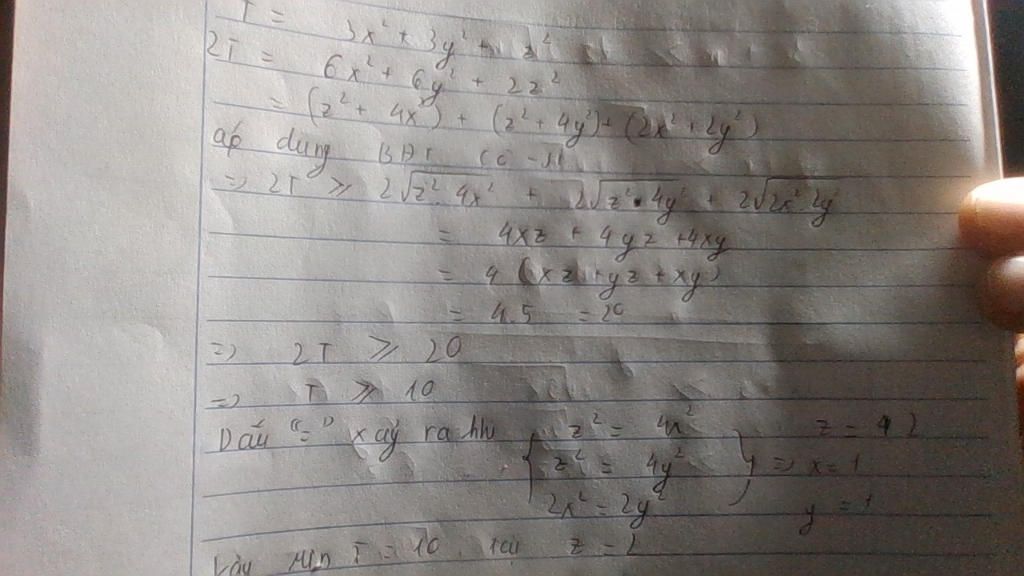 T = 3x² + 3y² + z²
2T = 6x² + 6y² + 2z²
= (z² + 4x²) + (z² + 4y²) + (2x² + 2y²)
áp dung BĐT CÔ-SI
=> 2T ≥ 2√z².4x² + 2√z².4y² + 2√2x².2y²
= 4xz + 4yz + 4xy
= 4 (xz + yz + xy)
= 4.5 = 20
=> 2T ≥ 20
=> T ≥ 10
Dấu "=" xảy ra khi { z² = 4x² z = 2
z² = 4y² } => x = 1
2x² = 2y² y = 1
Vậy Min T = 10 tại z = 2